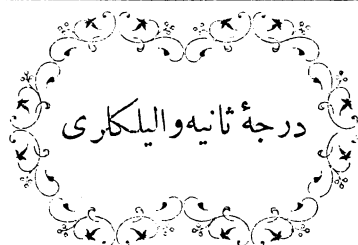 درجهٔ ثانیه والیلکلری